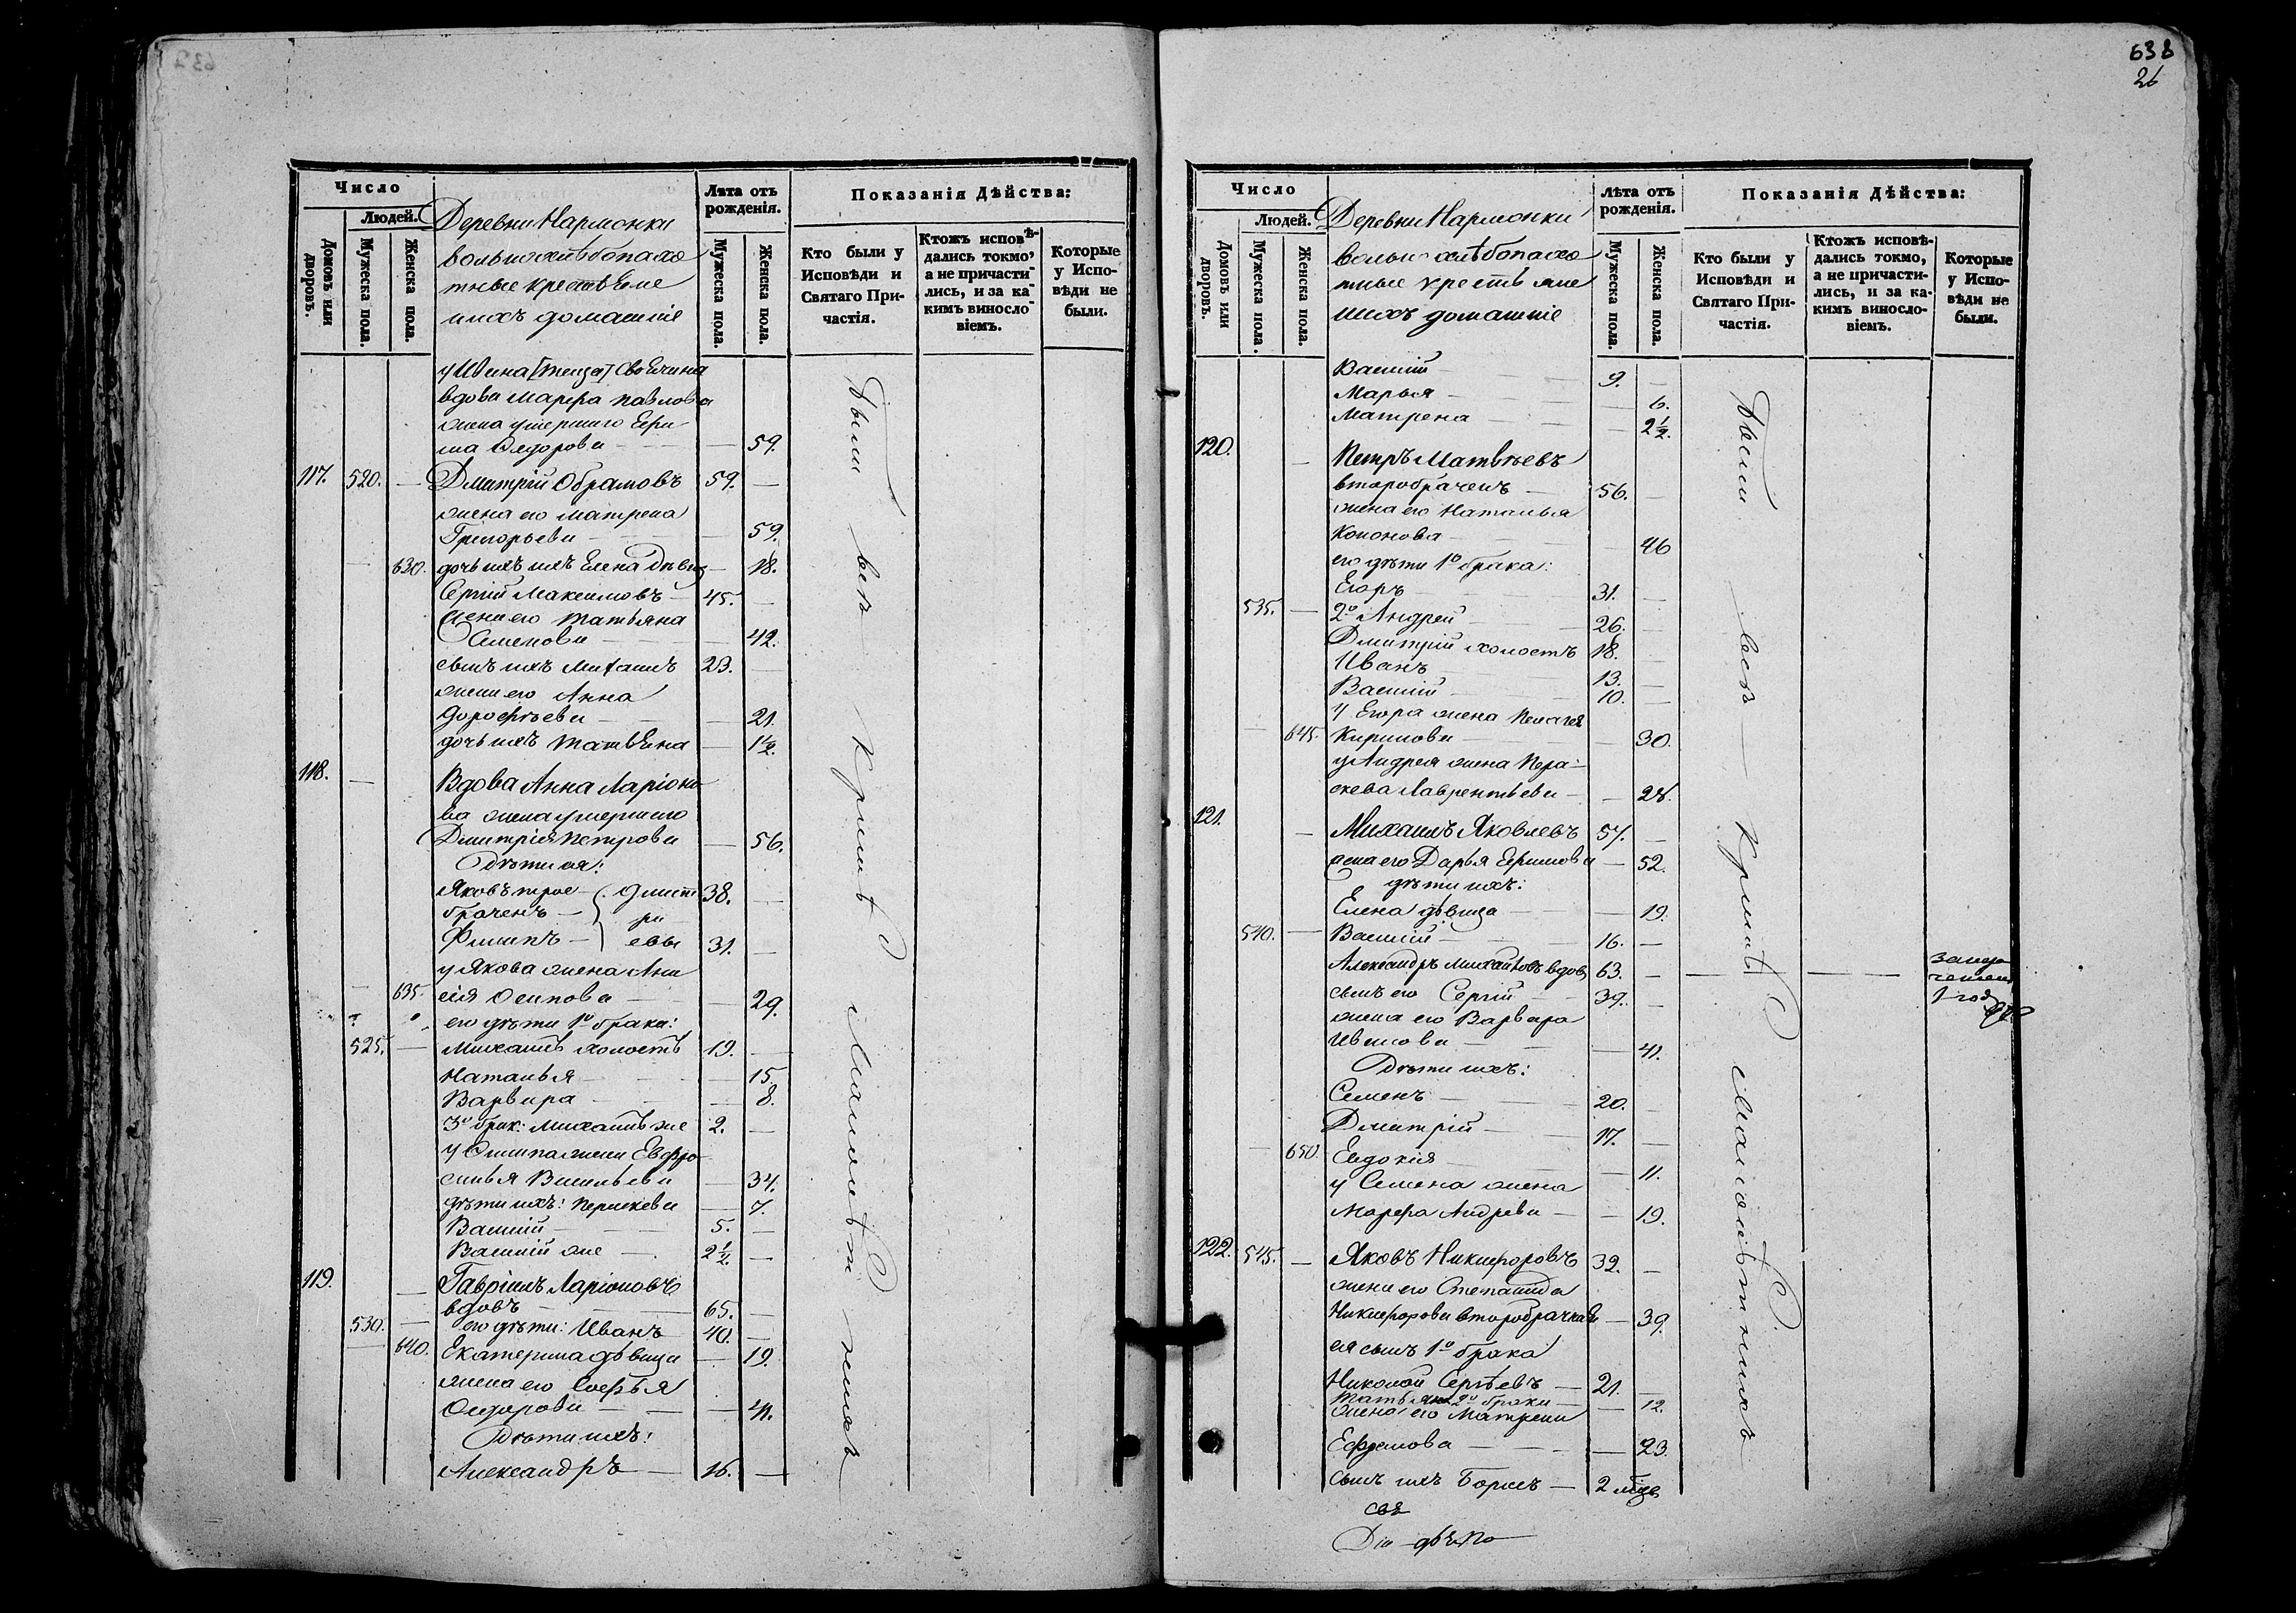 638
26
Число
Людей.
Домовъ или дворовъ.
Мужеска пола.
Женска пола.
Деревни Нармонки
вольно хлѣбопахо
тные крестьяне
ихъ домашніе
Лѣта отъ рожденія.
Мужеска пола.
Женска пола.
Показанія Дѣйства:
Кто были у Исповѣди и Святаго Причастія.
Ктожъ исповѣдались токмо, а не причастились, и за какимъ винословіемъ.
Которые у Исповѣди не были.
у Ивана [теща]
вдова Марфа Павлова
жена умершаго Ефи
ма Федорова — 59.
117. 520. — Дмитрій Обрамовъ 59. —
жена его Матрена
Григорьева — 59.
— 630. дочь ихъ Елена дѣвица — 18.
Сергій Максимовъ — 45. —
жена его Татьяна
Семенова — 42.
сынъ ихъ Михаилъ 23. —
жена его Анна
Дорофѣева — 21.
дочь ихъ Татьяна — 1½.
118. — Вдова Анна Ларіоно
ва жена умершаго
Дмитрія Петрова — 56.
дѣти ея:
Яковъ трое — Дмит 38. —
браченъ — рі
Филипъ — евы 31. —
у Якова жена Ани
— 635. сія Осипова — 29.
его дѣти 1го брака:
525. — Михаилъ холостъ 19. —
Наталья — 15.
Варвара — 8.
3го брак: Михаилъ же 2. —
у Филипа жена Евфро
синья Васильева — 34.
дѣти ихъ: Параскева — 7.
Василій — 5. —
Василій же — 2½. —
119. — Гавріилъ Ларіоновъ
вдовъ — 65. —
530. — его дѣти: Иванъ 40. —
— 640. Екатерина дѣвица — 19.
жена его Софья
Федорова — 41.
Дѣти ихъ:
Александръ — 16. —
были всѣ кромѣ малолѣтнихъ
Число
Людей.
Домовъ или дворовъ.
Мужеска пола.
Женска пола.
Деревни Нармонки
вольно хлѣбопахо
тные крестьяне
ихъ домашніе
Лѣта отъ рожденія.
Мужеска пола.
Женска пола.
Показанія Дѣйства:
Кто были у Исповѣди и Святаго Причастія.
Ктожъ исповѣдались токмо, а не причастились, и за какимъ винословіемъ.
Которые у Исповѣди не были.
Василій — 9. —
Марья — 6.
Матрена — 2½.
120. — Петръ Матвѣевъ
второбраченъ — 56. —
жена его Наталья
Кононова — 46
его дѣти 1го брака:
Егоръ — 31. —
535. — 2го Андрей — 26. —
Дмитрій холостъ 18. —
Иванъ — 13. —
Василій — 10. —
у Егора жена Пелагея
— 645. Кирилова — 30.
у Андрея жена Пара
скева Лаврентьева — 28.
121. — Михаилъ Яковлевъ 57. —
жена его Дарья Ефимова — 52.
дѣти ихъ:
Елена дѣвица — 19.
540. — Василій — 16. —
Александръ Михайловъ вдовъ 63. —
1 годъ
сынъ его Сергій — 39. —
жена его Варвара
Иванова — 41.
Дѣти ихъ:
Семенъ — 20. —
Дмитрій — 17. —
— 650. Евдокія — 11.
у Семена жена
Марфа Андреева — 19.
122. 545. — Яковъ Никифоровъ 32. —
жена его Степанида
Никифорова второбрачная — 39.
ея сынъ 1го брака
Николай Сергѣевъ — 21. —
Татьяна 2го брака — 12.
жена его Матрена
Ефремова — 23.
сынъ ихъ Борисъ — 2 мѣся
были всѣ кромѣ малолѣтнихъ